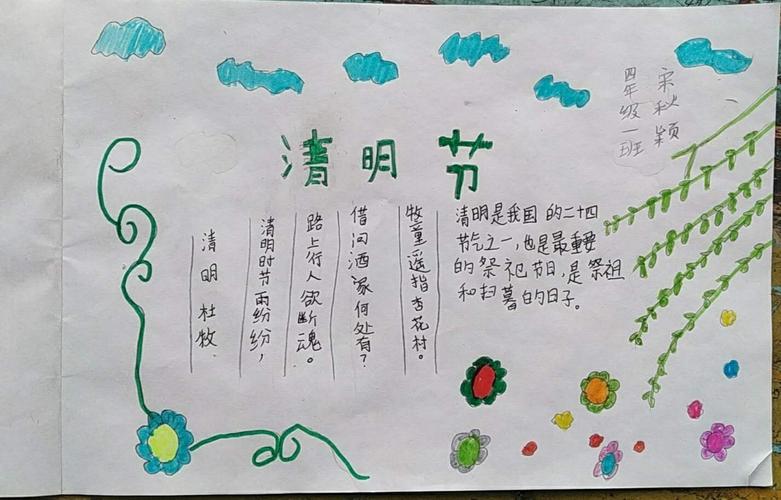 四年级一班
宋秋颖
清明节
清明 杜牧
清明时节雨纷纷，
路上行人欲断魂。
借问酒家何处有？
牧童遥指杏花村。
清明是我国的二十四
节气之一，也是最重要
的祭祀节日，是祭祖
和扫墓的日子。